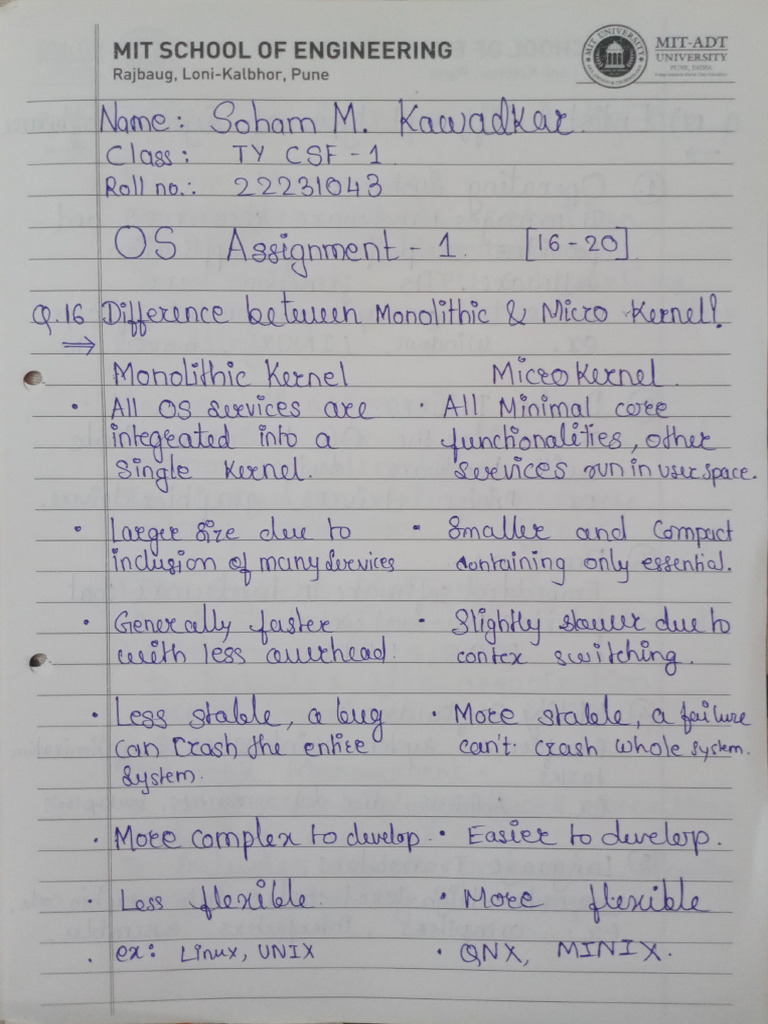 MIT SCHOOL OF ENGINEERING
Rajbaug, Loni-Kalbhor, Pune
MIT-ADT
UNIVERSITY
PUNE, INDIA
Name: Soham M. Kawadkar
Class: TY CSF-1
Roll no.: 22231043
OS Assignment-1. [16-20]
Q.16 Difference between Monolithic & Micro Kernel?
Monolithic Kernel MicroKernel
• All OS services are • All Minimal core
integrated into a functionalities, other
single kernel. services run in user space.
• Larger size due to • Smaller and compact
inclusion of many services containing only essential.
• Generally faster • Slightly slower due to
with less overhead. contex switching.
• Less stable, a bug • More stable, a failure
can crash the entire can't crash whole system.
system.
• More complex to develop. • Easier to develop.
• Less flexible • More flexible
• ex: Linux, UNIX • QNX, MINIX.